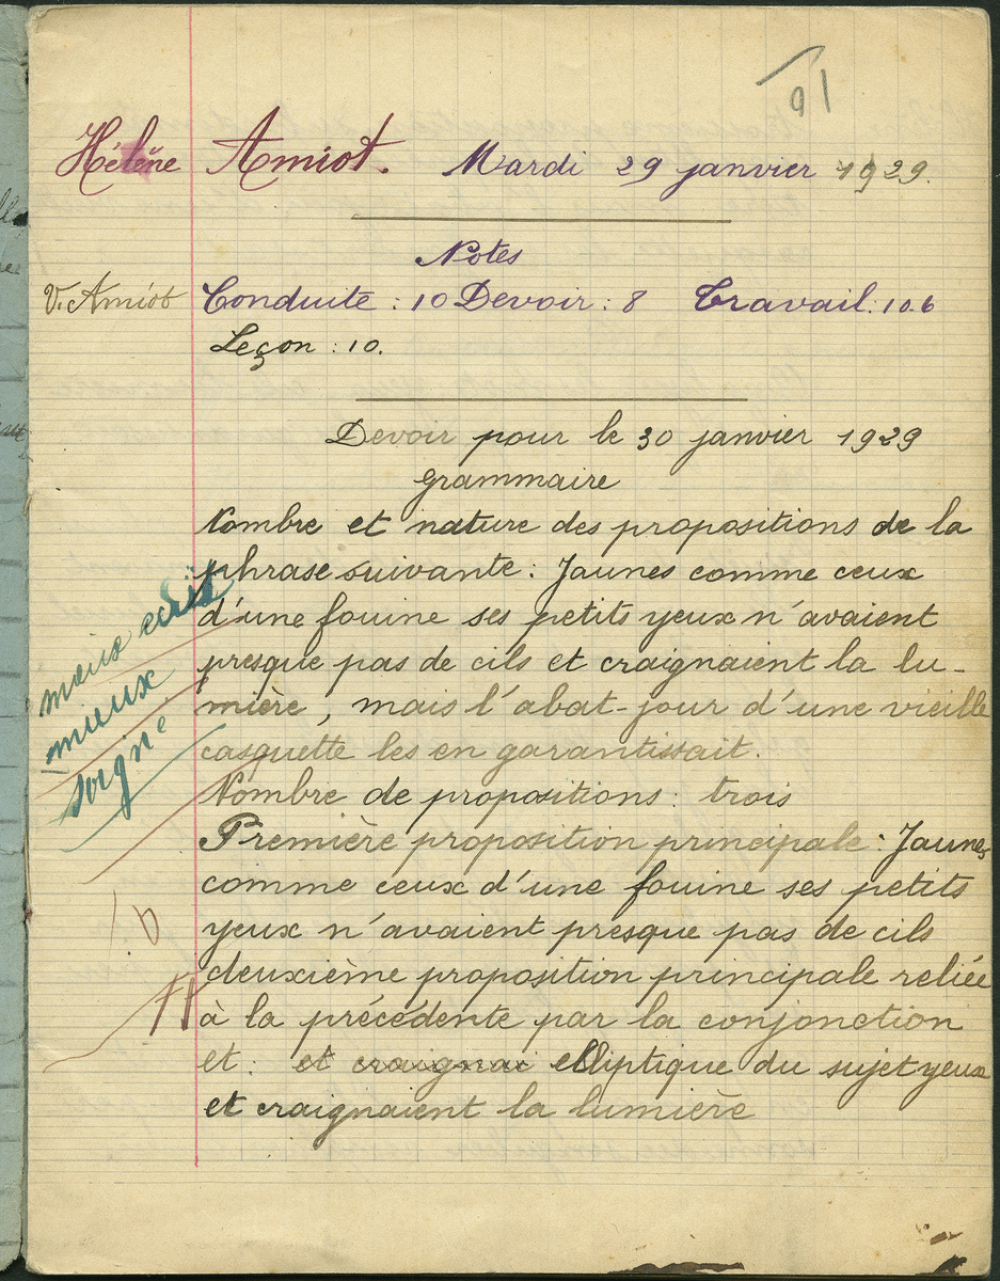 91
Hélène Amiot. Mardi 29 janvier 1929.
Notes
V. Amiot Conduite : 10 Devoir : 8 Travail : 10.6
Leçon : 10.
Devoir pour le 30 janvier 1929
grammaire
Nombre et nature des propositions de la
phrase suivante : Jaunes comme ceux
d'une fouine ses petits yeux n'avaient
presque pas de cils et craignaient la lu-
mière, mais l'abat-jour d'une vieille
casquette les en garantissait.
Nombre de propositions : trois
Première proposition principale : Jaunes
comme ceux d'une fouine ses petits
yeux n'avaient presque pas de cils
deuxième proposition principale reliée
à la précédente par la conjonction
et : et craignai elliptique du sujet yeux
et craignaient la lumière
mieux
soigné